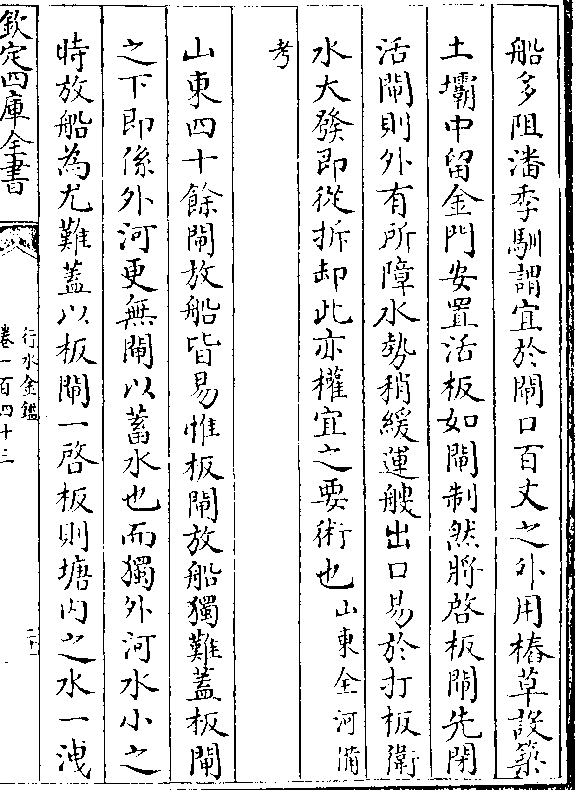 船多阻潘季馴謂宜於閘口百丈之外用樁草設築
土壩中留金門安置活板如閘制然將啓板閘先閉
活閘則外有所障水勢稍緩運艘出口易於打板衛
水大發即從拆卸此亦權宜之要術也山東全河備
考
山東四十餘閘放船皆易惟板閘放船獨難蓋板閘
之下即係外河更無閘以蓄水也而獨外河水小之
時放船為尤難蓋以板閘一啓板則塘內之水一洩
欽定四庫全書
行水金鑑
卷一百四十三